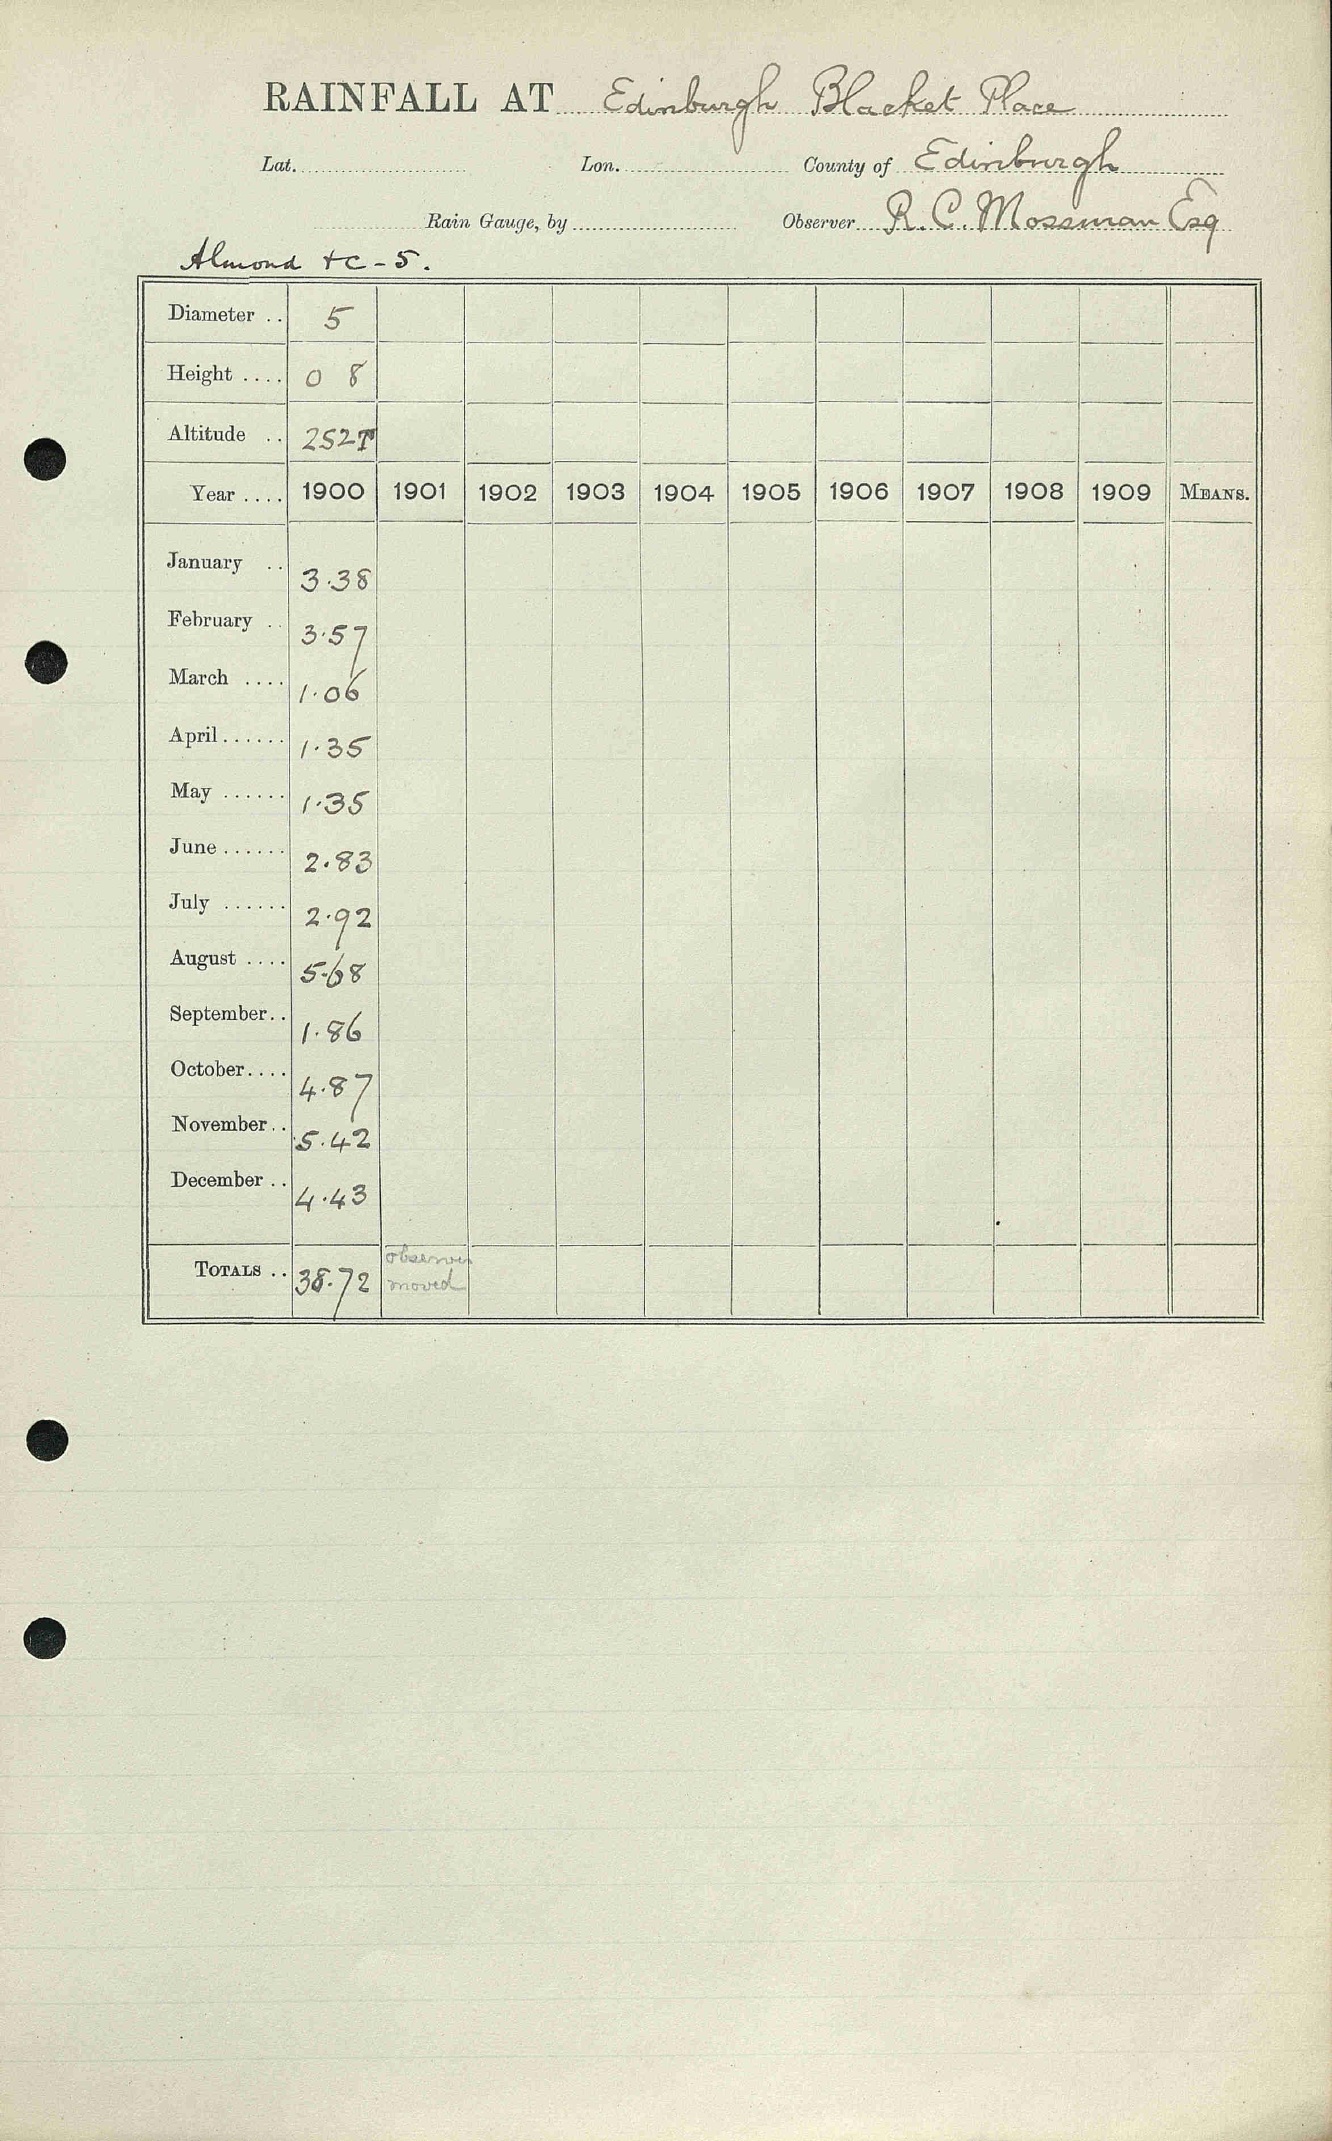 RAINFALL AT Edinburgh Blacket Place
Lat. Lon. County of Edinburgh
Rain Gauge, by Observer R. C. Mossman Esq
Almond &c - 5.
Diameter .. 5
Height .... 0 8
Altitude .. 252T
Year .... 1900 1901 1902 1903 1904 1905 1906 1907 1908 1909 MEANS.
January .. 3.38
February .. 3.57
March .... 1.06
April...... 1.35
May ...... 1.35
June...... 2.83
July ...... 2.92
August .... 5.68
September.. 1.86
October.... 4.87
November.. 5.42
December .. 4.43
TOTALS .. 38.72 observer
moved